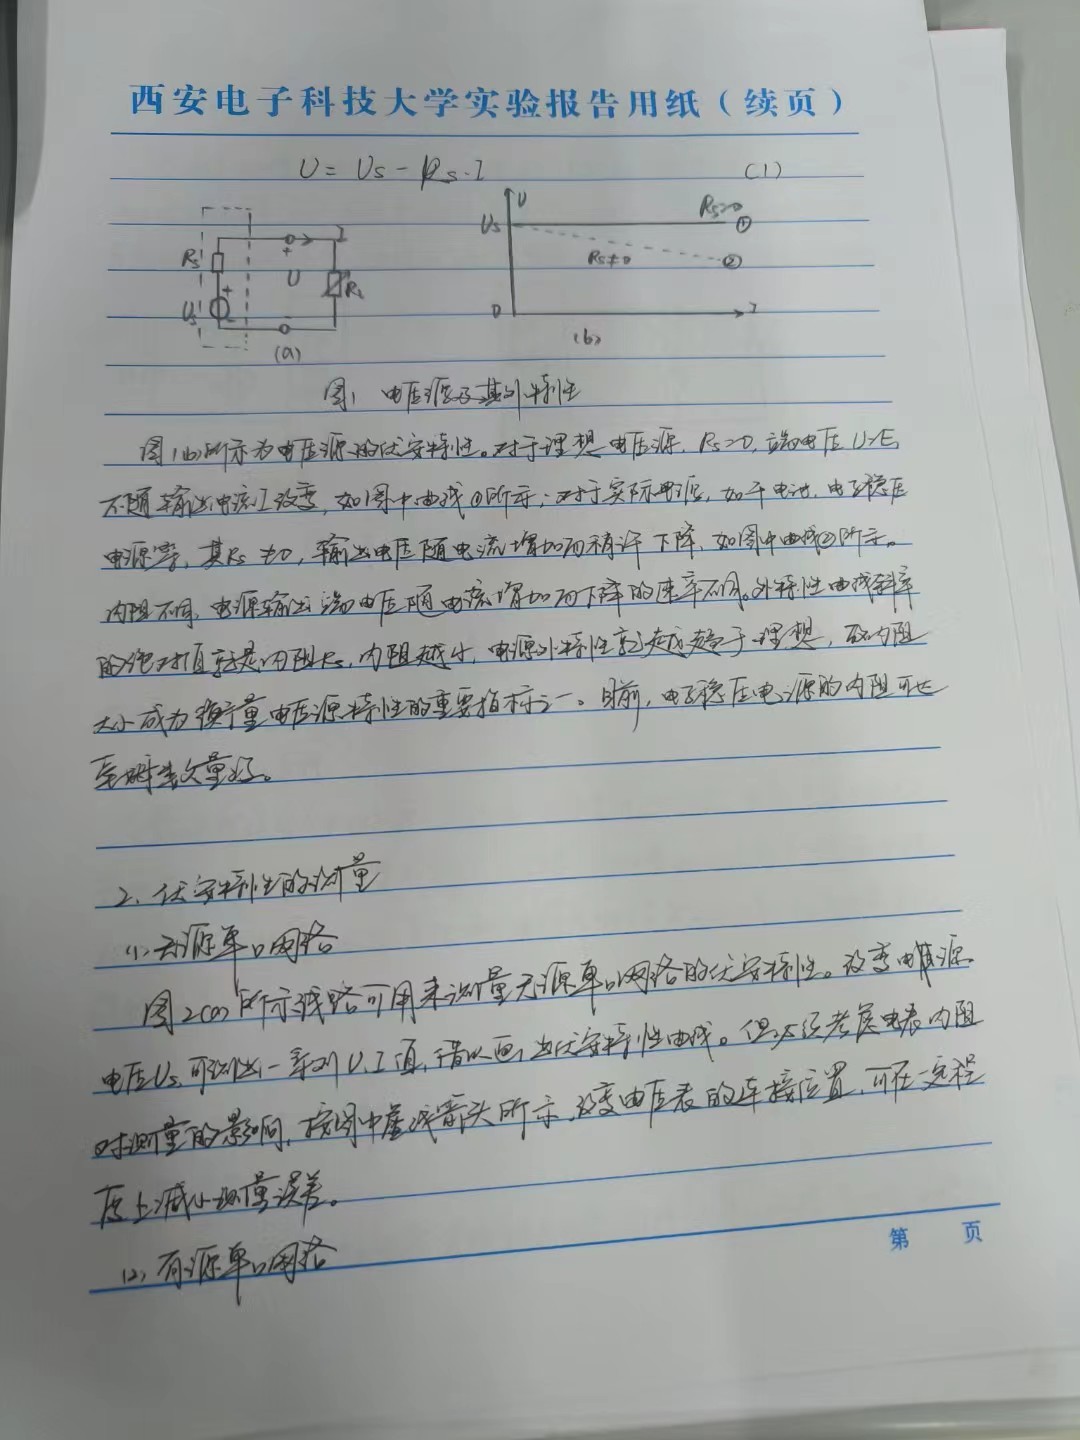 西安电子科技大学实验报告用纸（续页）
U = Us - Rs·I (1)
U
Us Rs=0 ①
Rs I
+
U Rs≠0 ②
RL
+
Us
0 I
(a) (b)
图1 电压源及其外特性
图1(b)所示为电压源的伏安特性。对于理想电压源，Rs=0，端电压U=E
不随输出电流I改变，如图中曲线①所示；对于实际电源，如干电池、电子稳压
电源等，其Rs≠0，输出电压随电流增加而稍许下降，如图中曲线②所示。
内阻不同，电源输出端电压随电流增加而下降的速率不同。外特性曲线斜率
的绝对值就是内阻Rs，内阻越小，电源外特性就越趋于理想，故内阻
大小成为衡量电压源特性的重要指标之一。目前，电子稳压电源的内阻可达
毫欧数量级。
2、伏安特性的测量
(1)无源单口网络
图2(a)所示线路可用来测量无源单口网络的伏安特性。改变电源
电压Us，可测出一系列U、I值，借以画出伏安特性曲线。但必须考虑电表内阻
对测量的影响，按图中虚线箭头所示，改变电压表的连接位置，可在一定程
度上减小测量误差。
第 页
(2)有源单口网络